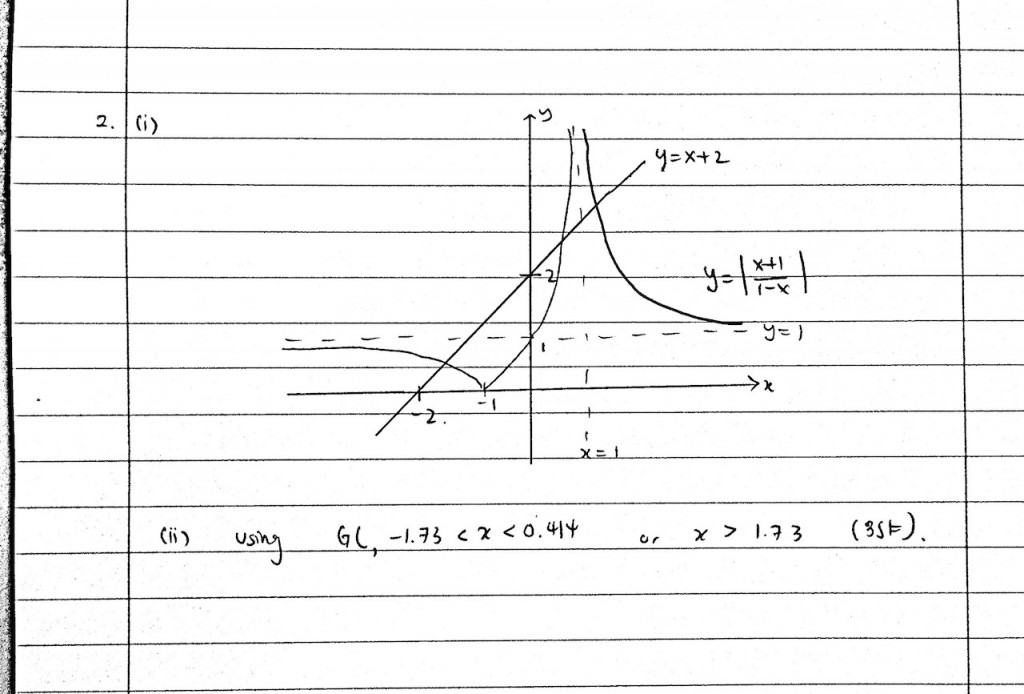 2. (i)
y
y=x+2
2
y=|x+1/1-x|
1
y=1
x
-2.
-1
x=1
(ii) using GC, -1.73 < x < 0.414 or x > 1.73 (3sf).